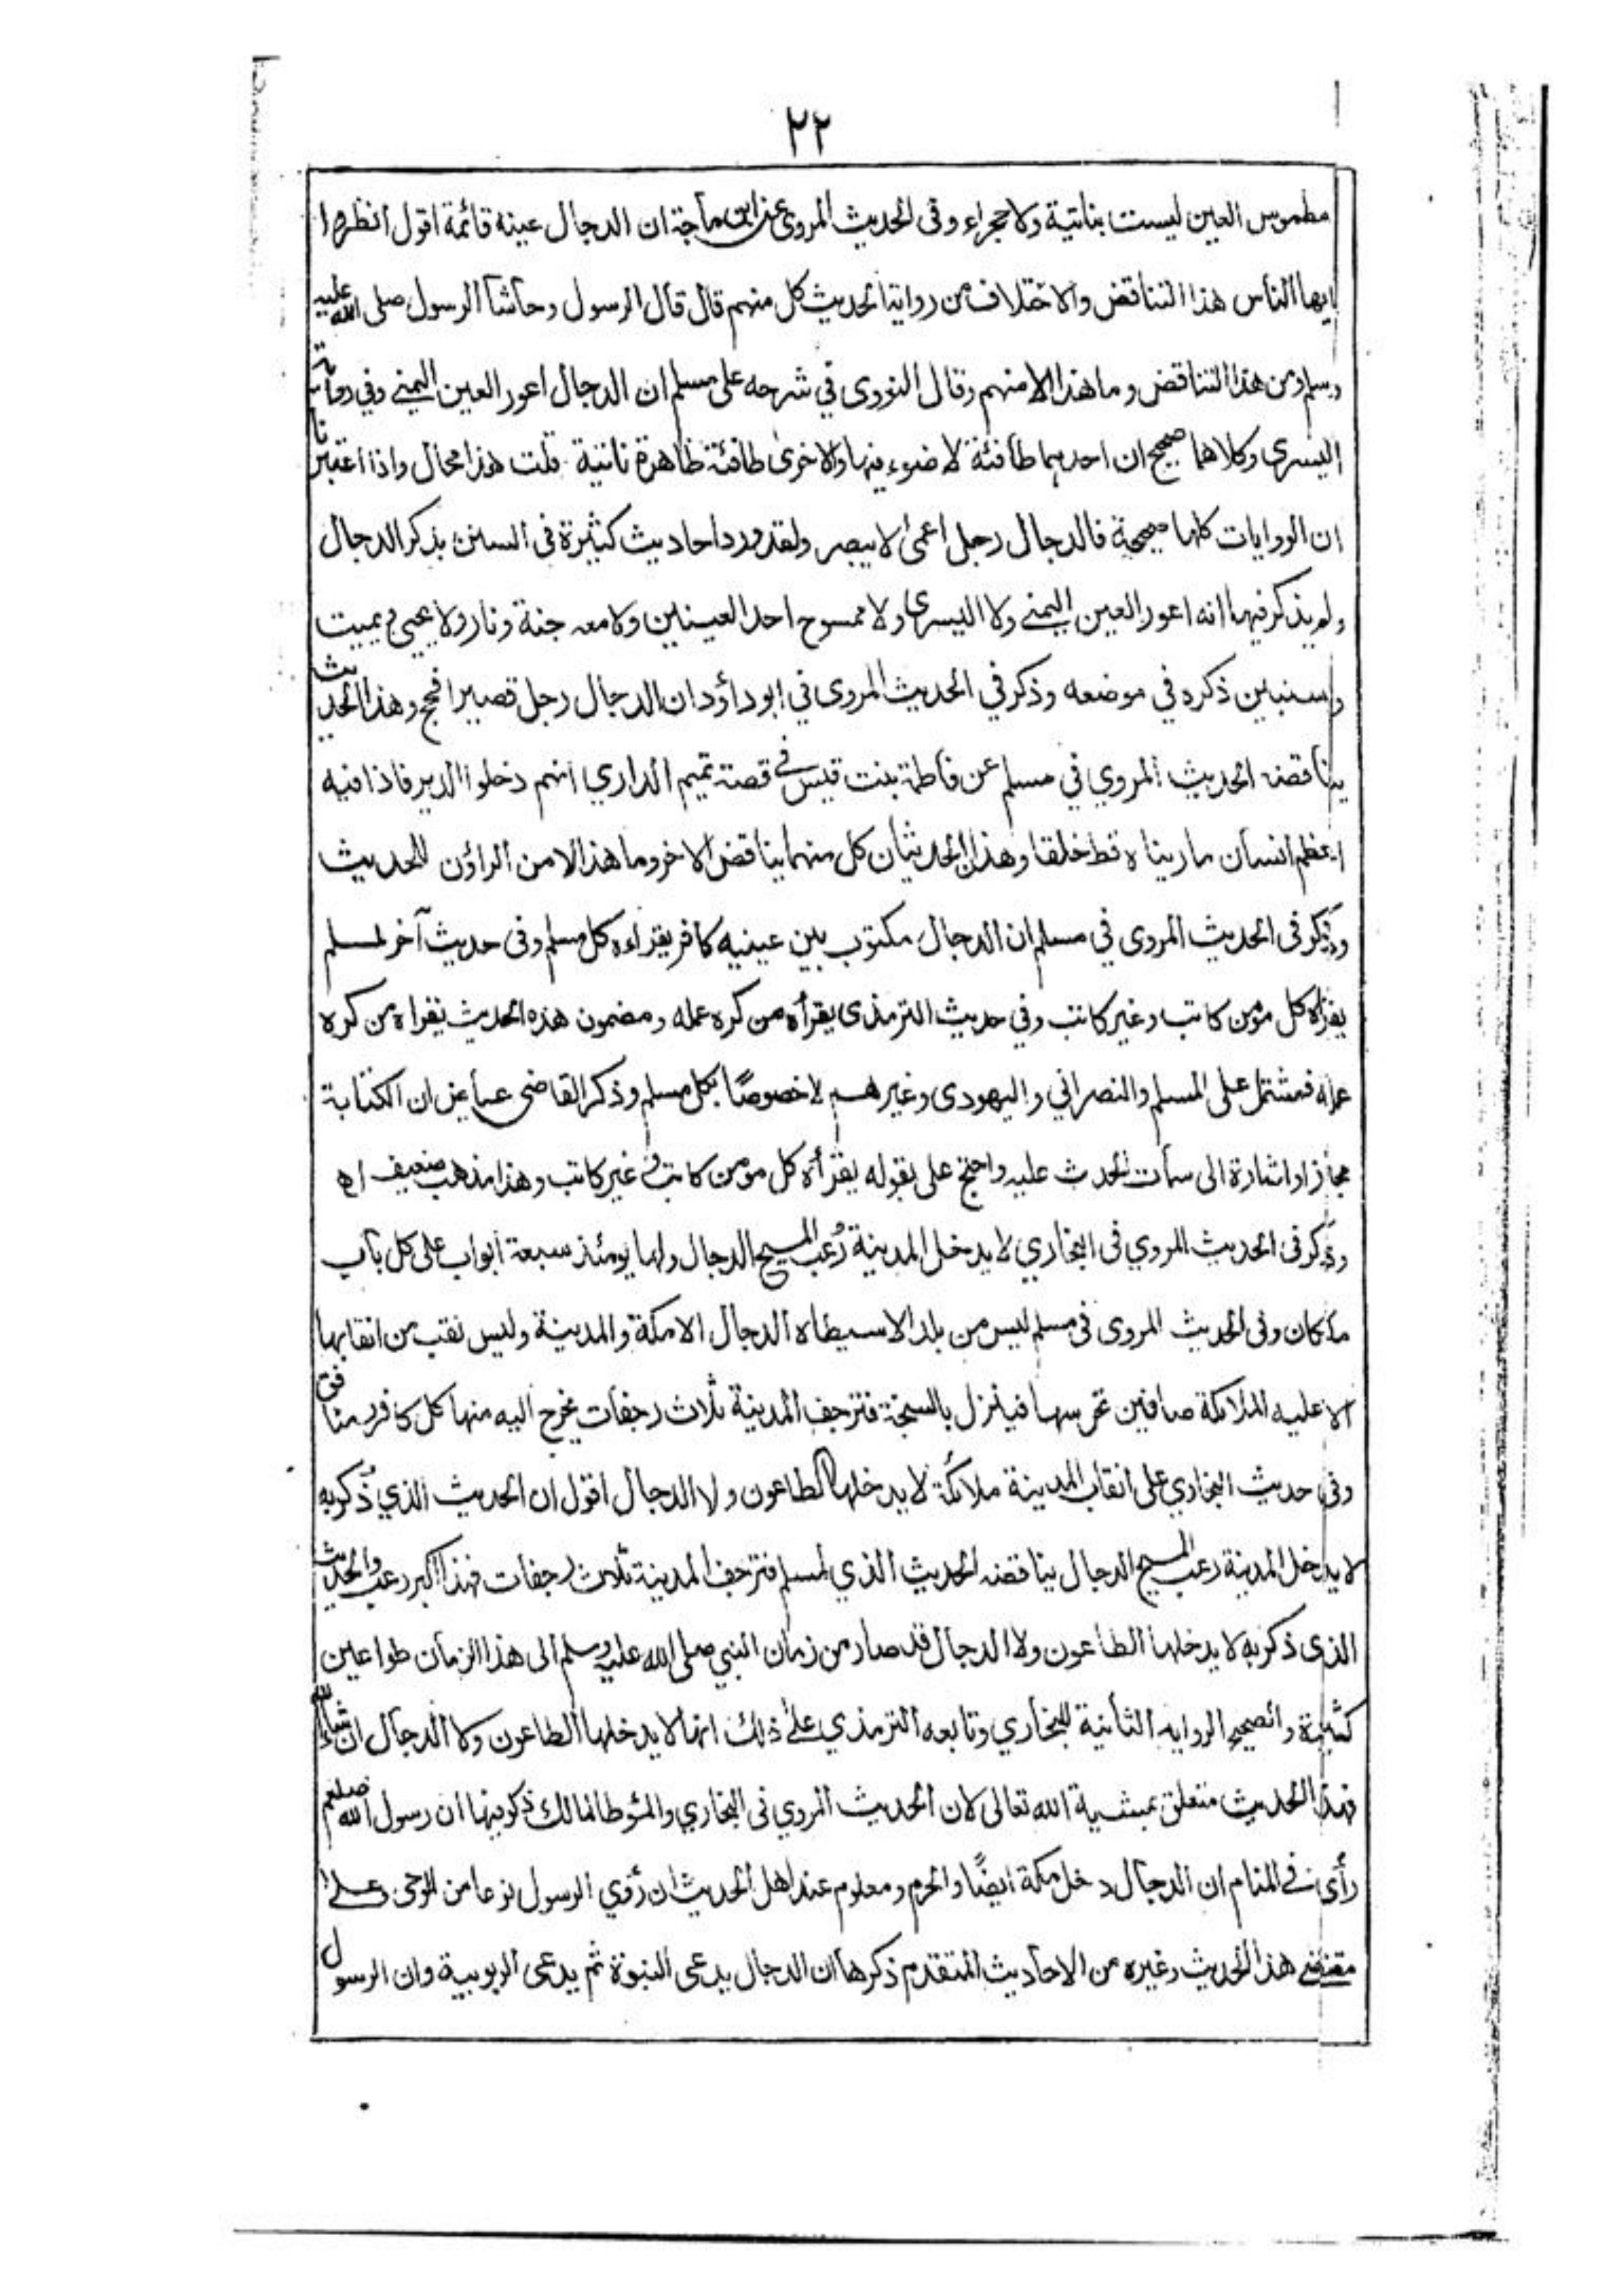 ٢٢
مطموس العين ليست بناتية ولا حجراء وفى الحديث المروى عن ابن ماجة ان الدجال عينه قائمة اقول انظروا
ايها الناس هذا التناقض والاختلاف من رواية الحديث كل منهم قال قال الرسول وحاشا الرسول صلى الله عليه
وسلم من هذا التناقض وما هذا الا منهم وقال النووى في شرحه على مسلم ان الدجال اعور العين اليمنے وفي رواية
اليسرى وكلاهما صحيح ان احديهما طافئة لا ضوء فيها والاخرى طافئة ظاهرة ناتية قلت هذا محال واذا اعتبرنا
ان الروايات كلها صحيحة فالدجال رجل اعمى لا يبصر ولقد ورد احاديث كثيرة فى السنن بذكر الدجال
ولم يذكر فيها انه اعور العين اليمنے ولا اليسرى ولا ممسوح احد العينين ولا معه جنة ونار ولا يحيى ويميت
وسنبين ذكره في موضعه وذكر في الحديث المروى في ابو داؤد ان الدجال رجل قصير افحج وهذا الحديث
يناقضه الحديث المروي في مسلم عن فاطمة بنت قيس فے قصة تميم الداري انهم دخلوا الدير فاذا فيه
اعظم انسان ما ريناه قط خلقا وهذا الحديثان كل منهما يناقض الاخر وما هذا الا من الراؤن للحديث
وذكر فى الحديث المروى في مسلم ان الدجال مكتوب بين عينيه كافر يقراءه كل مسلم وفى حديث آخر لمسلم
يقرأه كل مؤمن كاتب وغير كاتب وفي حديث الترمذى يقرأه من كره عمله ومضمون هذه الحديث يقراه من كره
عمله فمشتمل على المسلم والنصراني واليهودى وغيرهم لا خصوصًا بكل مسلم وذكر القاضى عياض ان الكتابة
مجاز او اشارة الى سمات الحدث عليه واحتج على بقوله يقرأه كل مومن كاتب وغير كاتب وهذا مذهب ضعيف اه
وذكر فى الحديث المروي فى البخاري لا يدخل المدينة رُعب المسيح الدجال ولها يومئذ سبعة ابواب على كل باب
ملكان وفى الحديث المروى فى مسلم ليس من بلد الا سيطاه الدجال الا مكة والمدينة وليس نقب من انقابها
الا عليه الملائكة صافين تحرسها فينزل بالسبخة فترجف المدينة ثلاث رجفات يخرج اليه منها كل كافر ومنافق
وفى حديث البخاري على انقاب المدينة ملائكة لا يدخلها الطاعون ولا الدجال اقول ان الحديث الذي ذُكر به
لا يدخل المدينة رعب المسيح الدجال يناقضه الحديث الذي لمسلم فترجف المدينة ثلاث رجفات فهذا اكبر رعب والحديث
الذى ذكر به لا يدخلها الطاعون ولا الدجال قد صار من زمان النبي صلى الله عليه وسلم الى هذا الزمان طواعين
كثيرة والصحيح الرواية الثانية للبخاري وتابعه الترمذي علے ذلك انها لا يدخلها الطاعون ولا الدجال ان شاء الله
فهذا الحديث متعلق بمشية الله تعالى لان الحديث المروي فى البخاري والمؤطا لمالك ذكر فيها ان رسول الله صلعم
رأى فے المنام ان الدجال دخل مكة ايضًا والحرم ومعلوم عند اهل الحديث ان رؤي الرسول نوعا من الوحى وعلے
مقتضے هذا الحديث وغيره من الاحاديث المتقدم ذكرها ان الدجال يدعى النبوة ثم يدعى الربوبية وان الرسول